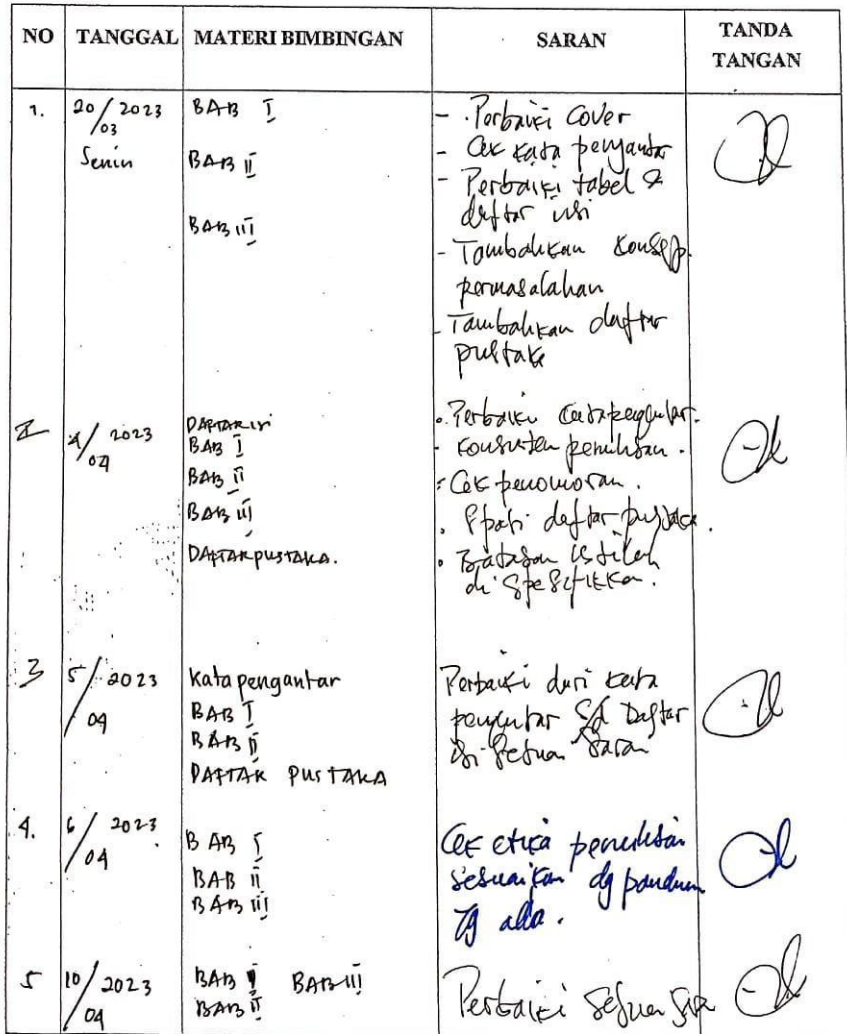 NO TANGGAL MATERI BIMBINGAN SARAN TANDA TANGAN
1. 20/03 2023 Senin
BAB I
BAB II
BAB III
- Perbaiki Cover
- Cek kata pengantar
- Perbaiki tabel &
daftar isi
- Tambahkan konsep
permasalahan
- Tambahkan daftar
pustaka
2 4/04 2023
DAFTAR isi
BAB I
BAB II
BAB III
DAFTAR PUSTAKA.
• Perbaiki kata pengantar.
- konsisten penulisan.
- Cek penomoran.
. daftar pustaka.
• Batasan istilah
di spesifikkan.
3 5/04 2023
kata pengantar
BAB I
BAB II
DAFTAR PUSTAKA
Perbaiki dari kata
pengantar s/d Daftar
isi sesuai saran
4. 6/04 2023
BAB I
BAB II
BAB III
Cek etika penulisan
sesuaikan dg panduan
yg ada.
5 10/04 2023
BAB I BAB III
BAB II
Perbaiki sesuai